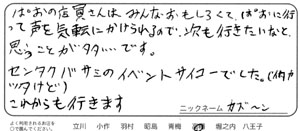 ぱおの店員さんは、みんなおもしろくて、ぱおに行
って声を気軽にかけられるので、次も行きたいなと、
思うことがタタいです。
センタクバサミのイベントサイコーでした。(作カ
ツタけど)
これからも行きます
ニックネーム カズ〜ン
よく利用されるお店を
○で囲んでください。
立川 小作 羽村 昭島 青梅 堀之内 八王子